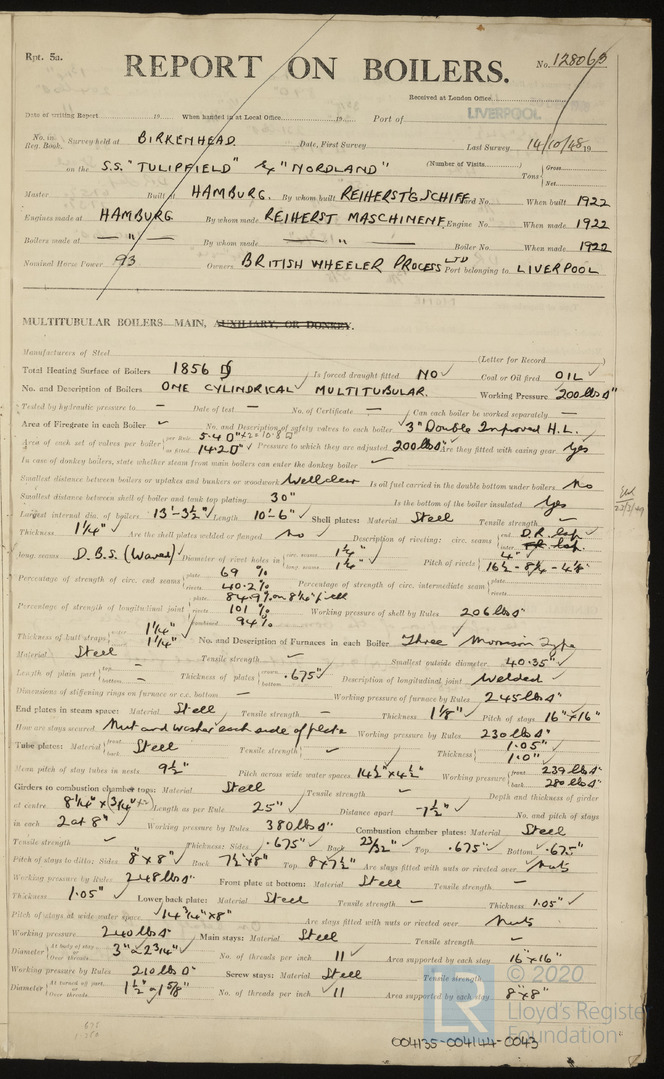 Rpt. 5a.
No. 128063
REPORT ON BOILERS.
Received at London Office
LIVERPOOL
Date of writing Report 19 When handed in at Local Office 19 Port of
No. in Reg. Book. Survey held at BIRKENHEAD Date, First Survey Last Survey 14/10/48 19
on the S.S. "TULIPFIELD" Ex "NORDLAND" (Number of Visits) Tons Gross Net
Master Built at HAMBURG. By whom built REIHERST'G SCHIFF Yard No. When built 1922
Engines made at HAMBURG By whom made REIHERST MASCHINENF. Engine No. When made 1922
Boilers made at — " — By whom made — " — Boiler No. When made 1922
Nominal Horse Power 93 Owners BRITISH WHEELER PROCESS LTD Port belonging to LIVERPOOL
MULTITUBULAR BOILERS—MAIN, AUXILIARY, OR DONKEY.
Manufacturers of Steel (Letter for Record )
Total Heating Surface of Boilers 1856 Is forced draught fitted NO Coal or Oil fired OIL
No. and Description of Boilers ONE CYLINDRICAL MULTITUBULAR. Working Pressure 200 lbs □"
Tested by hydraulic pressure to — Date of test — No. of Certificate — Can each boiler be worked separately —
Area of Firegrate in each Boiler No. and Description of safety valves to each boiler 3" Double Improved H.L.
Area of each set of valves per boiler per Rule 5.4 □" x2 = 10.8 □ as fitted 14.2 □" Pressure to which they are adjusted 200 lbs □" Are they fitted with easing gear Yes
In case of donkey boilers, state whether steam from main boilers can enter the donkey boiler —
Smallest distance between boilers or uptakes and bunkers or woodwork Well clear Is oil fuel carried in the double bottom under boilers No
Smallest distance between shell of boiler and tank top plating 30" Is the bottom of the boiler insulated Yes
Largest internal dia. of boilers 13'-3½" Length 10'-6" Shell plates: Material Steel Tensile strength —
Thickness 1¼" Are the shell plates welded or flanged No Description of riveting: circ. seams end D.R. lap inter. lap
long. seams D.B.S. (Waved) Diameter of rivet holes in circ. seams 1¼" long. seams 1¼" Pitch of rivets 4" 16½ - 8¼ - 4⅛
Percentage of strength of circ. end seams plate 69 % rivets 40.2 % Percentage of strength of circ. intermediate seam plate rivets
Percentage of strength of longitudinal joint plate 84.9% rivets 101 % combined 94 % Working pressure of shell by Rules 206 lbs □"
Thickness of butt straps outer 1¼" inner 1¼" No. and Description of Furnaces in each Boiler Three Morrison Type
Material Steel Tensile strength — Smallest outside diameter 40.35"
Length of plain part top — bottom — Thickness of plates crown bottom .675" Description of longitudinal joint Welded
Dimensions of stiffening rings on furnace or c.c. bottom — Working pressure of furnace by Rules 245 lbs □"
End plates in steam space: Material Steel Tensile strength — Thickness 1⅛" Pitch of stays 16" x 16"
How are stays secured Nut and washer each side of plate Working pressure by Rules 230 lbs □"
Tube plates: Material front back Steel Tensile strength Thickness 1.05" 1.0"
Mean pitch of stay tubes in nests 9½" Pitch across wide water spaces 14½" x 4½" Working pressure front 239 lbs □" back 280 lbs □"
Girders to combustion chamber tops: Material Steel Tensile strength — Depth and thickness of girder
at centre 8¼" x ¾" x2 Length as per Rule 25" Distance apart 7½" No. and pitch of stays
in each 2 at 8" Working pressure by Rules 380 lbs □" Combustion chamber plates: Material Steel
Tensile strength — Thickness: Sides .675" Back 23/32" Top .675" Bottom .675"
Pitch of stays to ditto: Sides 8" x 8" Back 7½" x 8" Top 8 x 7½" Are stays fitted with nuts or riveted over Nuts
Working pressure by Rules 248 lbs □" Front plate at bottom: Material Steel Tensile strength —
Thickness 1.05" Lower back plate: Material Steel Tensile strength — Thickness 1.05"
Pitch of stays at wide water space 14¾" x 8" Are stays fitted with nuts or riveted over Nuts
Working pressure 240 lbs □" Main stays: Material Steel Tensile strength —
Diameter At body of stay or Over threads 3" & 2¾" No. of threads per inch 11 Area supported by each stay 16" x 16"
Working pressure by Rules 210 lbs □" Screw stays: Material Steel Tensile strength
Diameter At turned off part or Over threads 1½" & 1⅝" No. of threads per inch 11 Area supported by each stay 8" x 8"
LR © 2020
Lloyd's Register
Foundation
004135-004144-0043